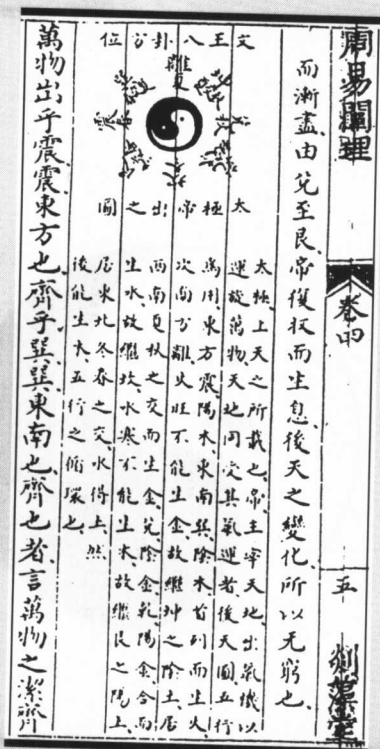 周易闡理
卷四
五
而漸盡由兌至艮帝復扠而生息後天之變化所以无窮也
文王八卦方位
太極帝出之圖
太極上天之所載也帝主宰天地出氣機以
運旋萬物天地同受其氣運者後天圖五行
為用東方震陽木東南巽陰木首列而生火
次南方離火旺不能生金故繼坤之陰土居
西南夏秋之交而生金兌陰金乾陽金合而
生水故繼坎水寒不能生木故繼艮之陽土
居東北冬春之交水得土然
後能生木五行之循環也
萬物出乎震震東方也齊乎巽巽東南也齊也者言萬物之潔齊